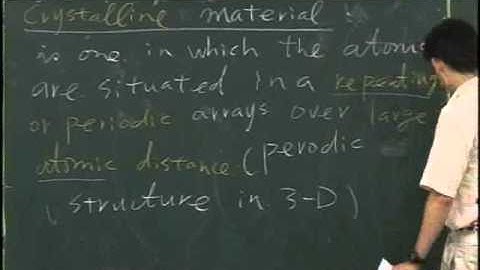 Crystalline material
is one in which the atoms
are situated in a repeating
or periodic arrays over large
atomic distance (perodic
structure in 3-D)